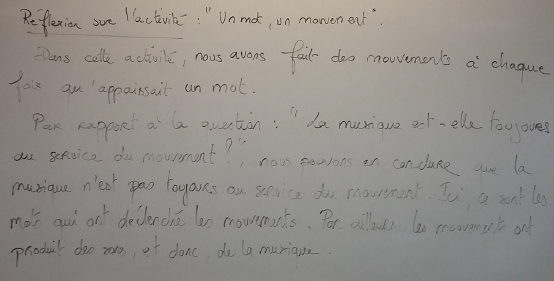 Réflexion sur l'activité : "Un mot, un mouvement".
Dans cette activité, nous avons fait des mouvements à chaque
fois qu'appaissait un mot.
Par rapport à la question : "La musique est-elle toujours
au service du mouvement ?", nous pouvons en conclure que la
musique n'est pas toujours au service du mouvement. Ici, ce sont les
mots qui ont déclenché les mouvements. Par ailleurs, les mouvements ont
produit des sons, et donc, de la musique.